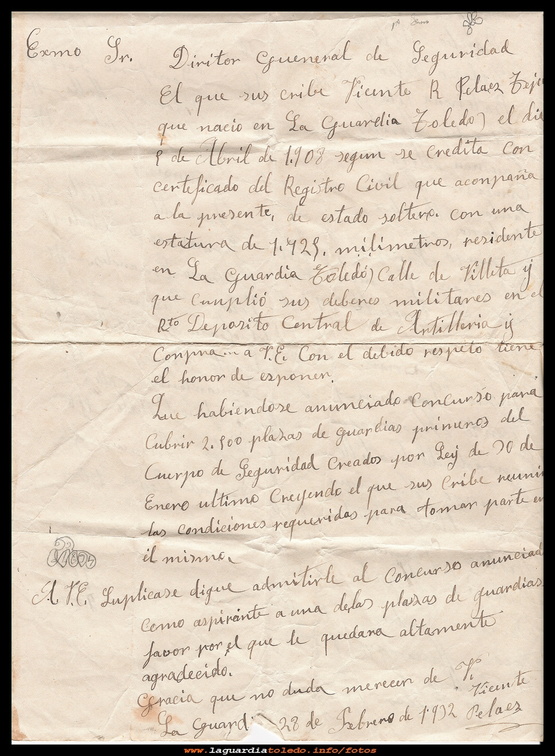 Exmo Sr. Diritor Gueneral de Seguridad
El que sus cribe Vicente R Pelaez
que nacio en La Guardia Toledo) el
de Abril de 1.908 segun se credita con
certificado del Registro Civil que aconpaña
a la presente, de estado soltero. con una
estatura de milimetros, residente
en La Guardia Toledo) Calle de Villeta y
que cunplió sus deberes militares en el
Rto Deposito Central de Artilleria y
a V.E. Con el debido respeto tiene
el honor de esponer.
Que habiendose anunciado Concurso para
Cubrir 2.500 plazas de guardias primeros del
Cuerpo de Seguridad Creados por Ley de 30 de
Enero ultimo Creyendo el que sus Cribe reunir
las condiciones requeridas para tomar parte en
él mismo.
A V.E. Suplicase digue admitirle al Concurso
como aspirante a una delas plazas de guardias
favor por el que le quedara altamente
agradecido.
Gracia que no duda merecer de V.
La Guardi 28 de Febrero de 1932
Vicente
Pelaez
www.laguardiatoledo.info/fotos